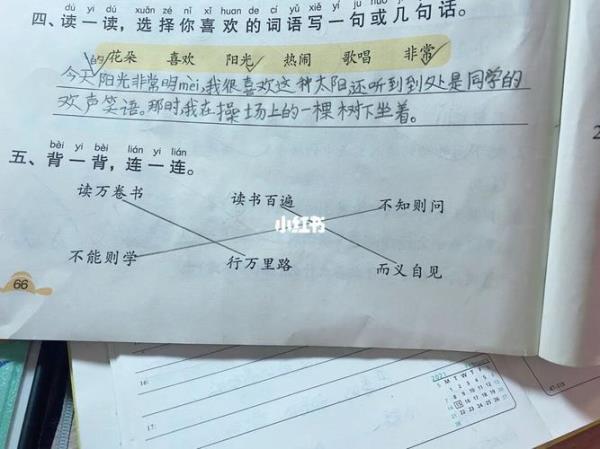 dú yi dú xuǎn zé nǐ xǐ huan de cí yǔ xiě yí jù huò jǐ jù huà
四、读一读，选择你喜欢的词语写一句或几句话。
的花朵 喜欢 阳光 热闹 歌唱 非常
今天阳光非常明mèi，我很喜欢这种太阳还听到到处是同学的
欢声笑语。那时我在操场上的一棵树下坐着。
bèi yi bèi lián yi lián
五、背一背，连一连。
读万卷书 读书百遍 不知则问
小红书
不能则学 行万里路 而义自见
66
16:
17:
2021
S M T W T F S
47-318